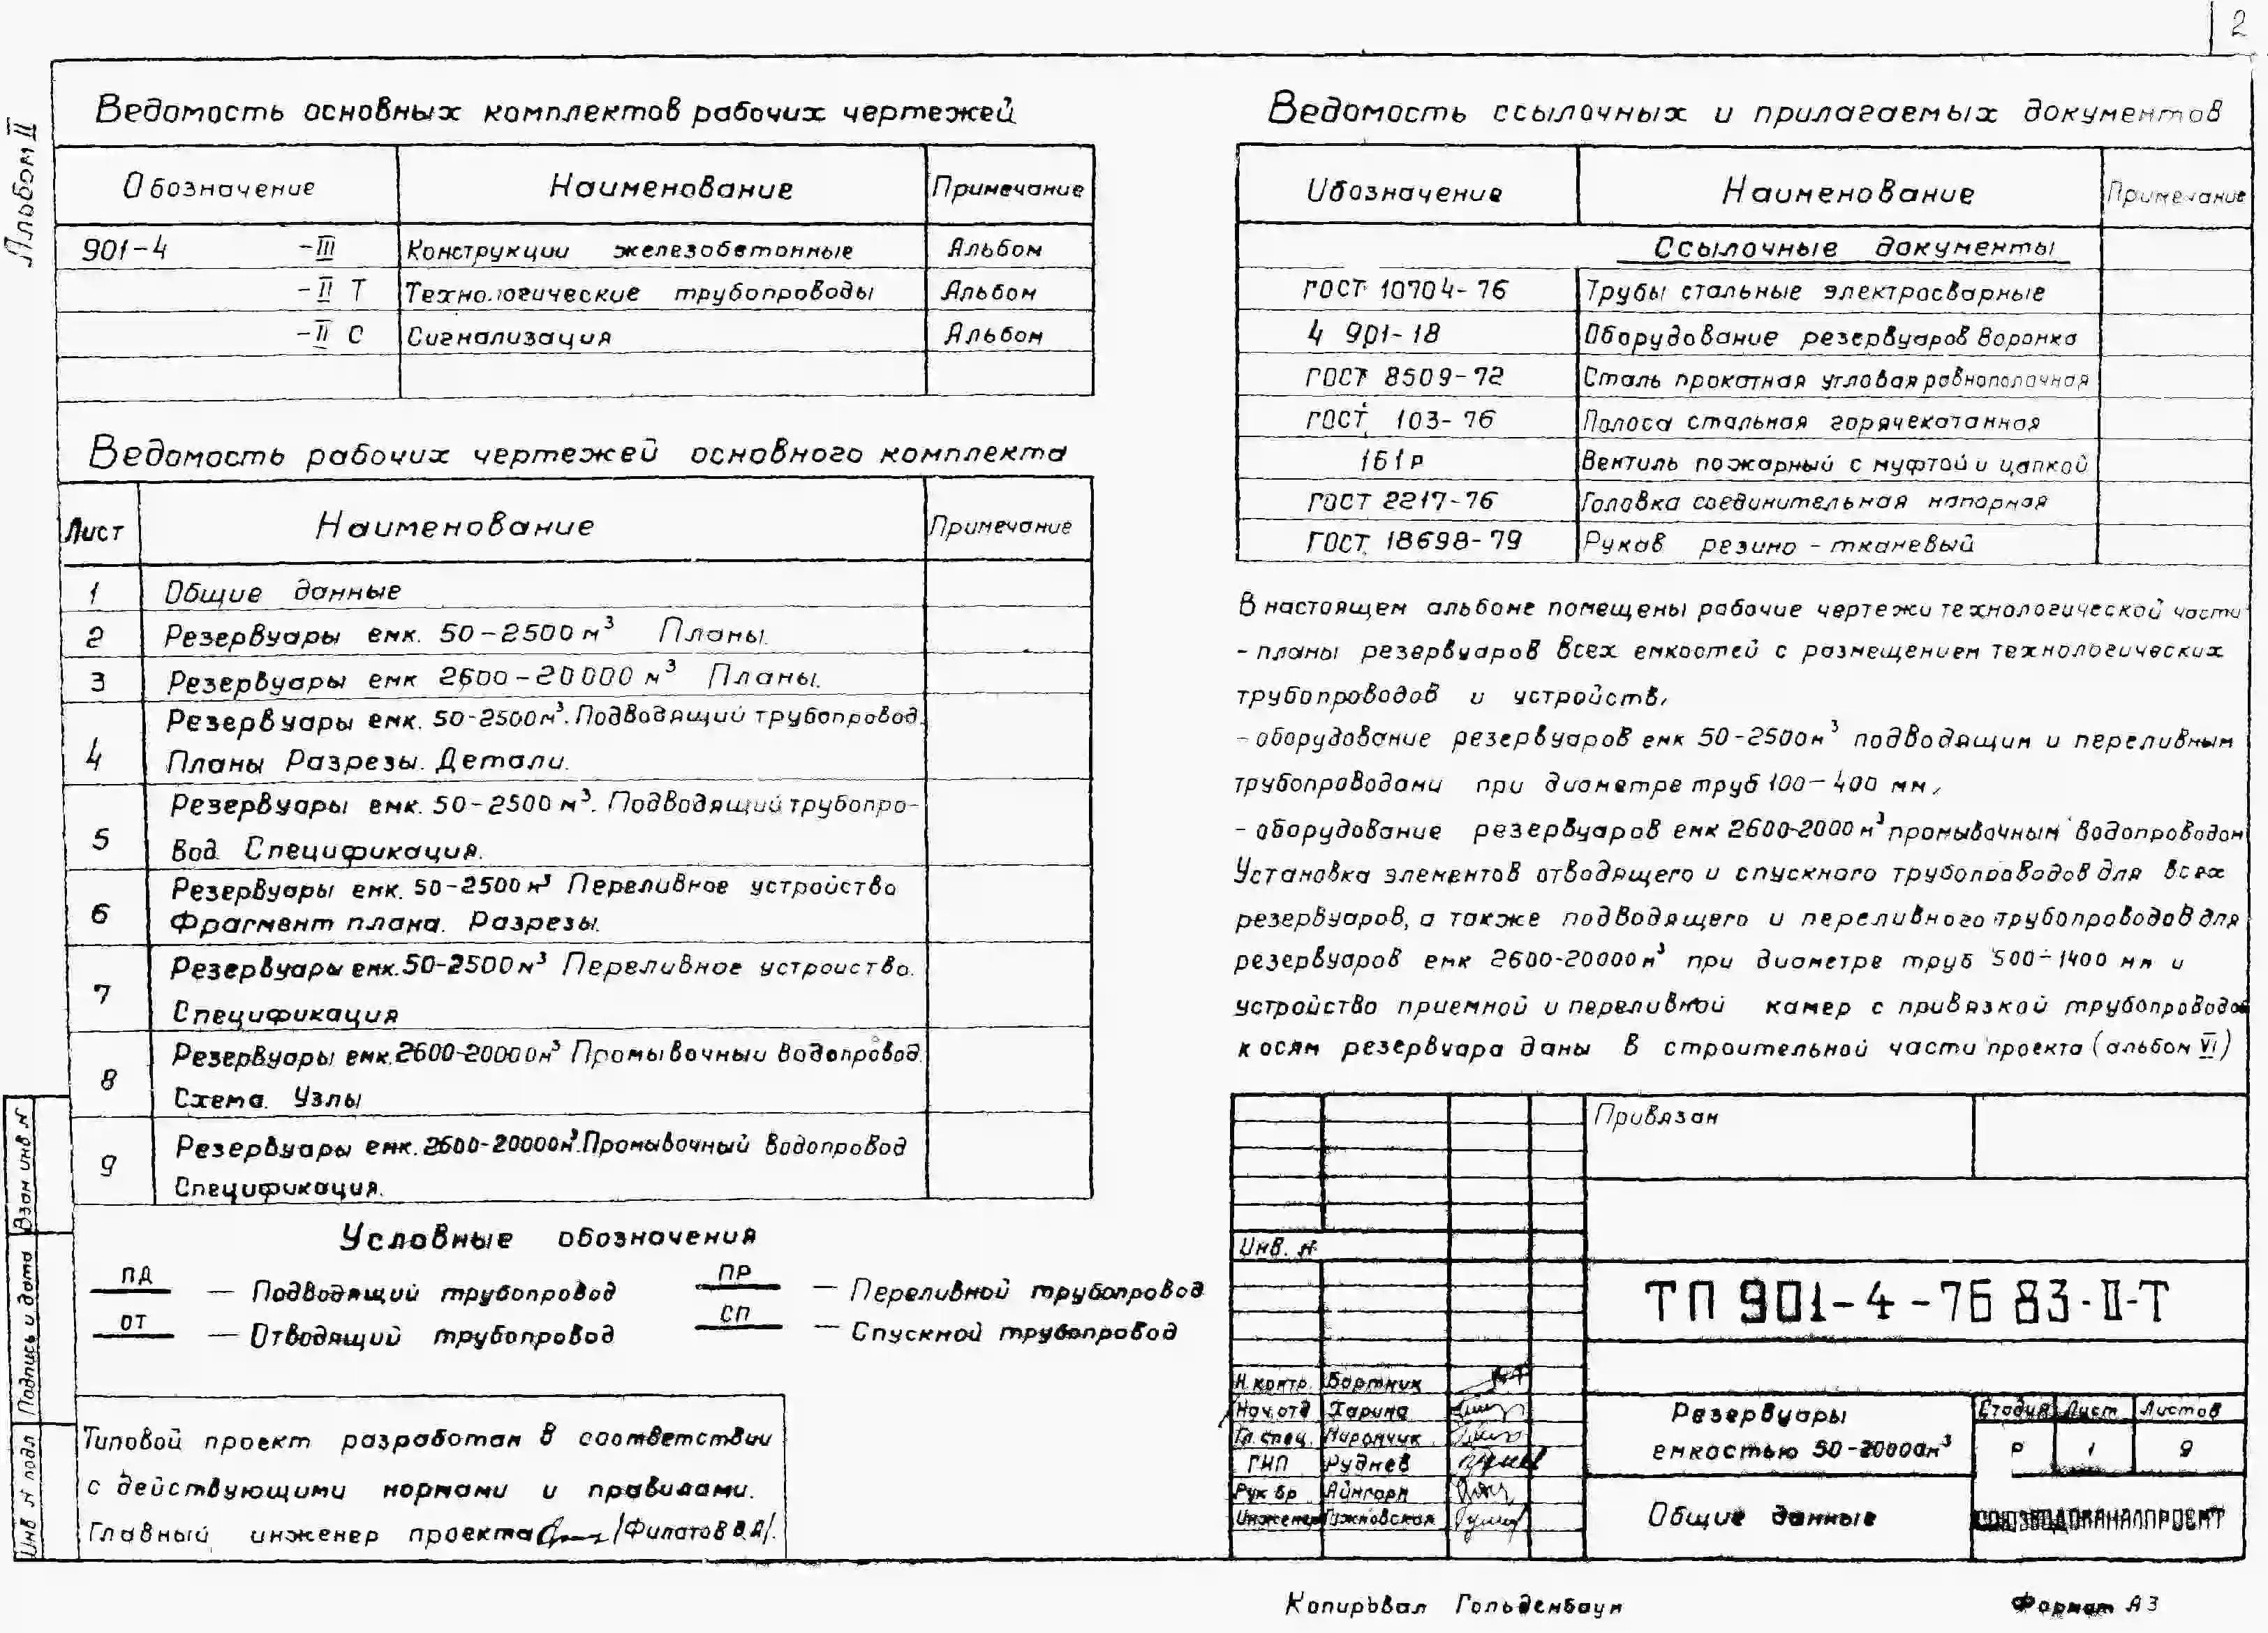 2
Альбом II
Ведомость основных комплектов рабочих чертежей
Обозначение Наименование Примечание
901-4 -III Конструкции железобетонные Альбом
-II Т Технологические трубопроводы Альбом
-II С Сигнализация Альбом
Ведомость рабочих чертежей основного комплекта
Лист Наименование Примечание
1 Общие данные
2 Резервуары емк. 50-2500 м³ Планы.
3 Резервуары емк 2600-20000 м³ Планы.
4 Резервуары емк. 50-2500м³. Подводящий трубопровод.
Планы Разрезы. Детали.
5 Резервуары емк. 50-2500 м³. Подводящий трубопро-
вод. Спецификация.
6 Резервуары емк. 50-2500 м³ Переливное устройство
Фрагмент плана. Разрезы.
7 Резервуары емк. 50-2500м³ Переливное устройство.
Спецификация
8 Резервуары емк. 2600-20000м³ Промывочный водопровод.
Схема. Узлы
9 Резервуары емк. 2600-20000м³. Промывочный водопровод
Спецификация.
Условные обозначения
ПД — Подводящий трубопровод
ПР — Переливной трубопровод
ОТ — Отводящий трубопровод
СП — Спускной трубопровод
Типовой проект разработан в соответствии
с действующими нормами и правилами.
Главный инженер проекта /Филатов В.А/.
Взам инв N
Подпись и дата
Инв N подл
Ведомость ссылочных и прилагаемых документов
Обозначение Наименование Примечание
Ссылочные документы
ГОСТ 10704-76 Трубы стальные электросварные
4 901-18 Оборудование резервуаров Воронка
ГОСТ 8509-72 Сталь прокатная угловая равнополочная
ГОСТ 103-76 Полоса стальная горячекатанная
1Б1р Вентиль пожарный с муфтой и цапкой
ГОСТ 2217-76 Головка соединительная напорная
ГОСТ 18698-79 Рукав резино-тканевый
В настоящем альбоме помещены рабочие чертежи технологической части
- планы резервуаров всех емкостей с размещением технологических
трубопроводов и устройств,
- оборудование резервуаров емк 50-2500м³ подводящим и переливным
трубопроводами при диаметре труб 100-400 мм,
- оборудование резервуаров емк 2600-2000 м³ промывочным водопроводом
Установка элементов отводящего и спускного трубопроводов для всех
резервуаров, а также подводящего и переливного трубопроводов для
резервуаров емк 2600-20000м³ при диаметре труб 500-1400 мм и
устройство приемной и переливной камер с привязкой трубопроводов
к осям резервуара даны в строительной части проекта (альбом VI)
Привязан
Инв. N
ТП 901-4-76 83-II-Т
Н. контр. Бортник
Нач. отд Ларина
Гл. спец. Мирончик
ГИП Руднев
Рук бр Айнгорн
Инженер
Резервуары
емкостью 50-20000м³
Стадия Лист Листов
Р 1 9
Общие данные
СОЮЗВОДОКАНАЛПРОЕКТ
Копировал Гольденбаум
Формат А3